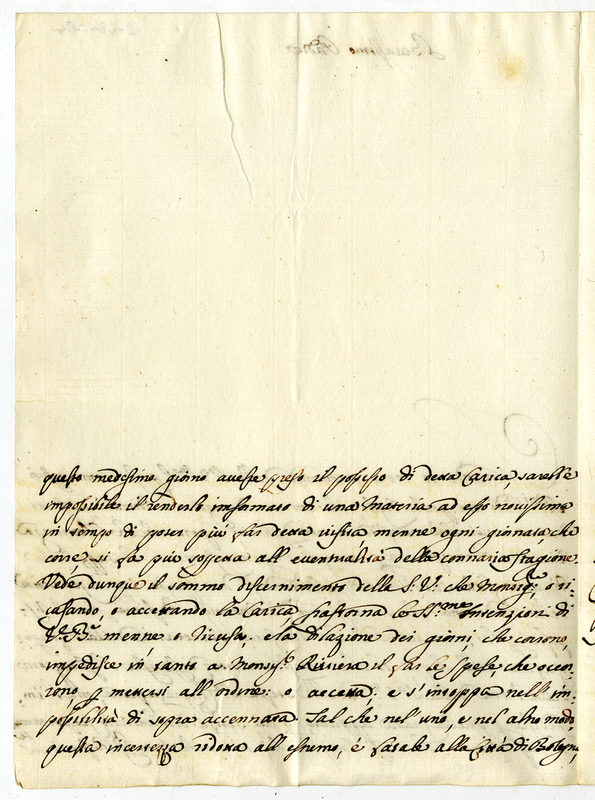 questo medesimo giorno avesse preso il possesso di detta Carica, sarebbe
impossibile il renderlo informato di una Materia ad esso novissima
in tempo di poter più far detta visita mentre ogni giornata che
corre si fà più soggetta all'eventualità della contraria stagione.
Vede dunque il sommo discernimento della S: V: che Monsig.re o ri-
casando, o accettando la Carica frastorna le SS.me Intenzioni di
V: B.e mentre o ricusa; e la dilazione dei giorni, che corrono,
impedisce in tanto a Monsig.r Riviera il far le spese, che occor-
rono p mettersi all'ordine: o accetta; e s'intoppa nell'im-
possibilità di sopra accennata. Tal che nel'uno, e nel altro modo,
questa incertezza ridotta all'estremo, è fatale alla Città di Bologna,